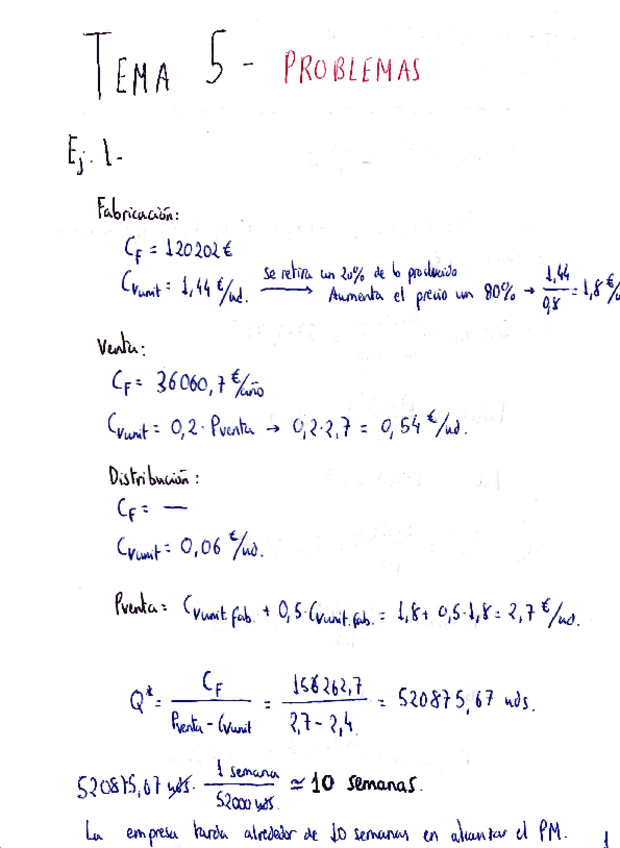 TEMA 5 - PROBLEMAS
Ej. 1.-
Fabricación:
CF = 120202 €
CVunit = 1,44 €/ud. se retira un 20% de lo producido → Aumenta el precio un 80% → 1,44/0,8 = 1,8 €/u
Venta:
CF = 36060,7 €/año
CVunit = 0,2 · Pventa → 0,2·2,7 = 0,54 €/ud.
Distribución:
CF = —
CVunit = 0,06 €/ud.
Pventa = CVunit fab. + 0,5 · CVunit fab. = 1,8 + 0,5·1,8 = 2,7 €/ud.
Q* = CF / (Pventa - CVunit) = 156262,7 / (2,7 - 2,4) = 520875,67 uds.
520875,67 uds. · 1 semana / 52000 uds. ≃ 10 semanas.
La empresa tarda alrededor de 10 semanas en alcanzar el PM.
1